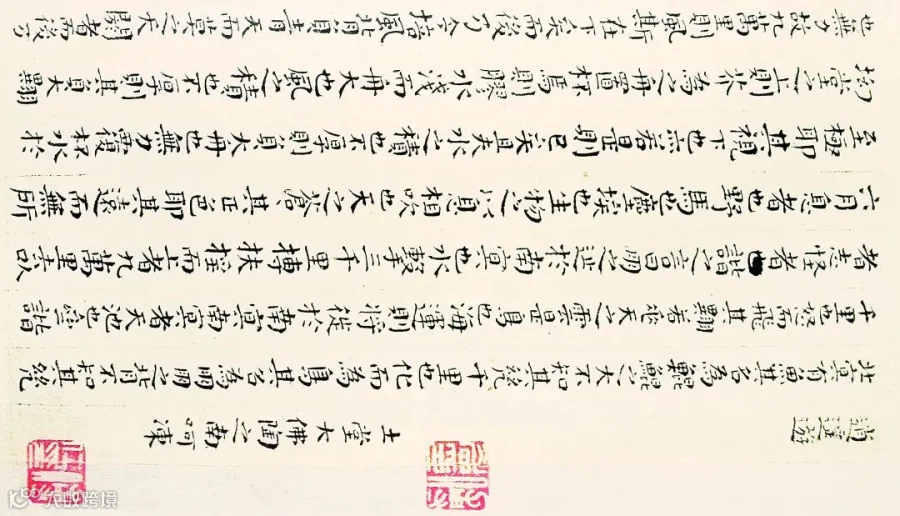 逍遙遊
土堂大佛陶之南呵凍
北冥有魚其名為鯤鯤之大不知其幾千里也化而為鳥其名為鵬鵬之背不知其幾
千里也怒而飛其翼若垂天之雲是鳥也海運則將徙於南冥南冥者天池也齊諧
者志怪者也諧之言曰鵬之徙於南冥也水擊三千里摶扶搖而上者九萬里去以
六月息者也野馬也塵埃也生物之以息相吹也天之蒼蒼其正色耶其遠而無所
至極耶其視下也亦若是則已矣且夫水之積也不厚則負大舟也無力覆杯水於
坳堂之上則芥為之舟置杯焉則膠水淺而舟大也風之積也不厚則其負大翼
也無力故九萬里則風斯在下矣而後乃今培風背負青天而莫之夭閼者而後乃
大数跨境